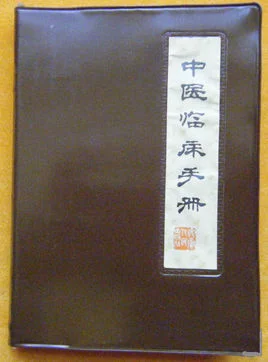 中医临床手册